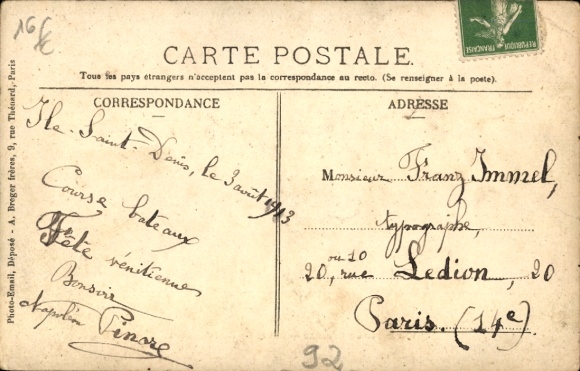 16 €
CARTE POSTALE.
Tous les pays étrangers n'acceptent pas la correspondance au recto. (Se renseigner à la poste).
RÉPUBLIQUE FRANÇAISE
Photo-Email, Déposé - A. Breger frères, 9, rue Thénard, Paris
CORRESPONDANCE
Ile-Saint-Denis, le 3 août 1913
Course bateaux
Fête vénitienne
Bonsoir
Napoléon
ADRESSE
Monsieur Franz Immel,
typographe,
ou 10
20, rue Ledion, 20
Paris. (14e)
92